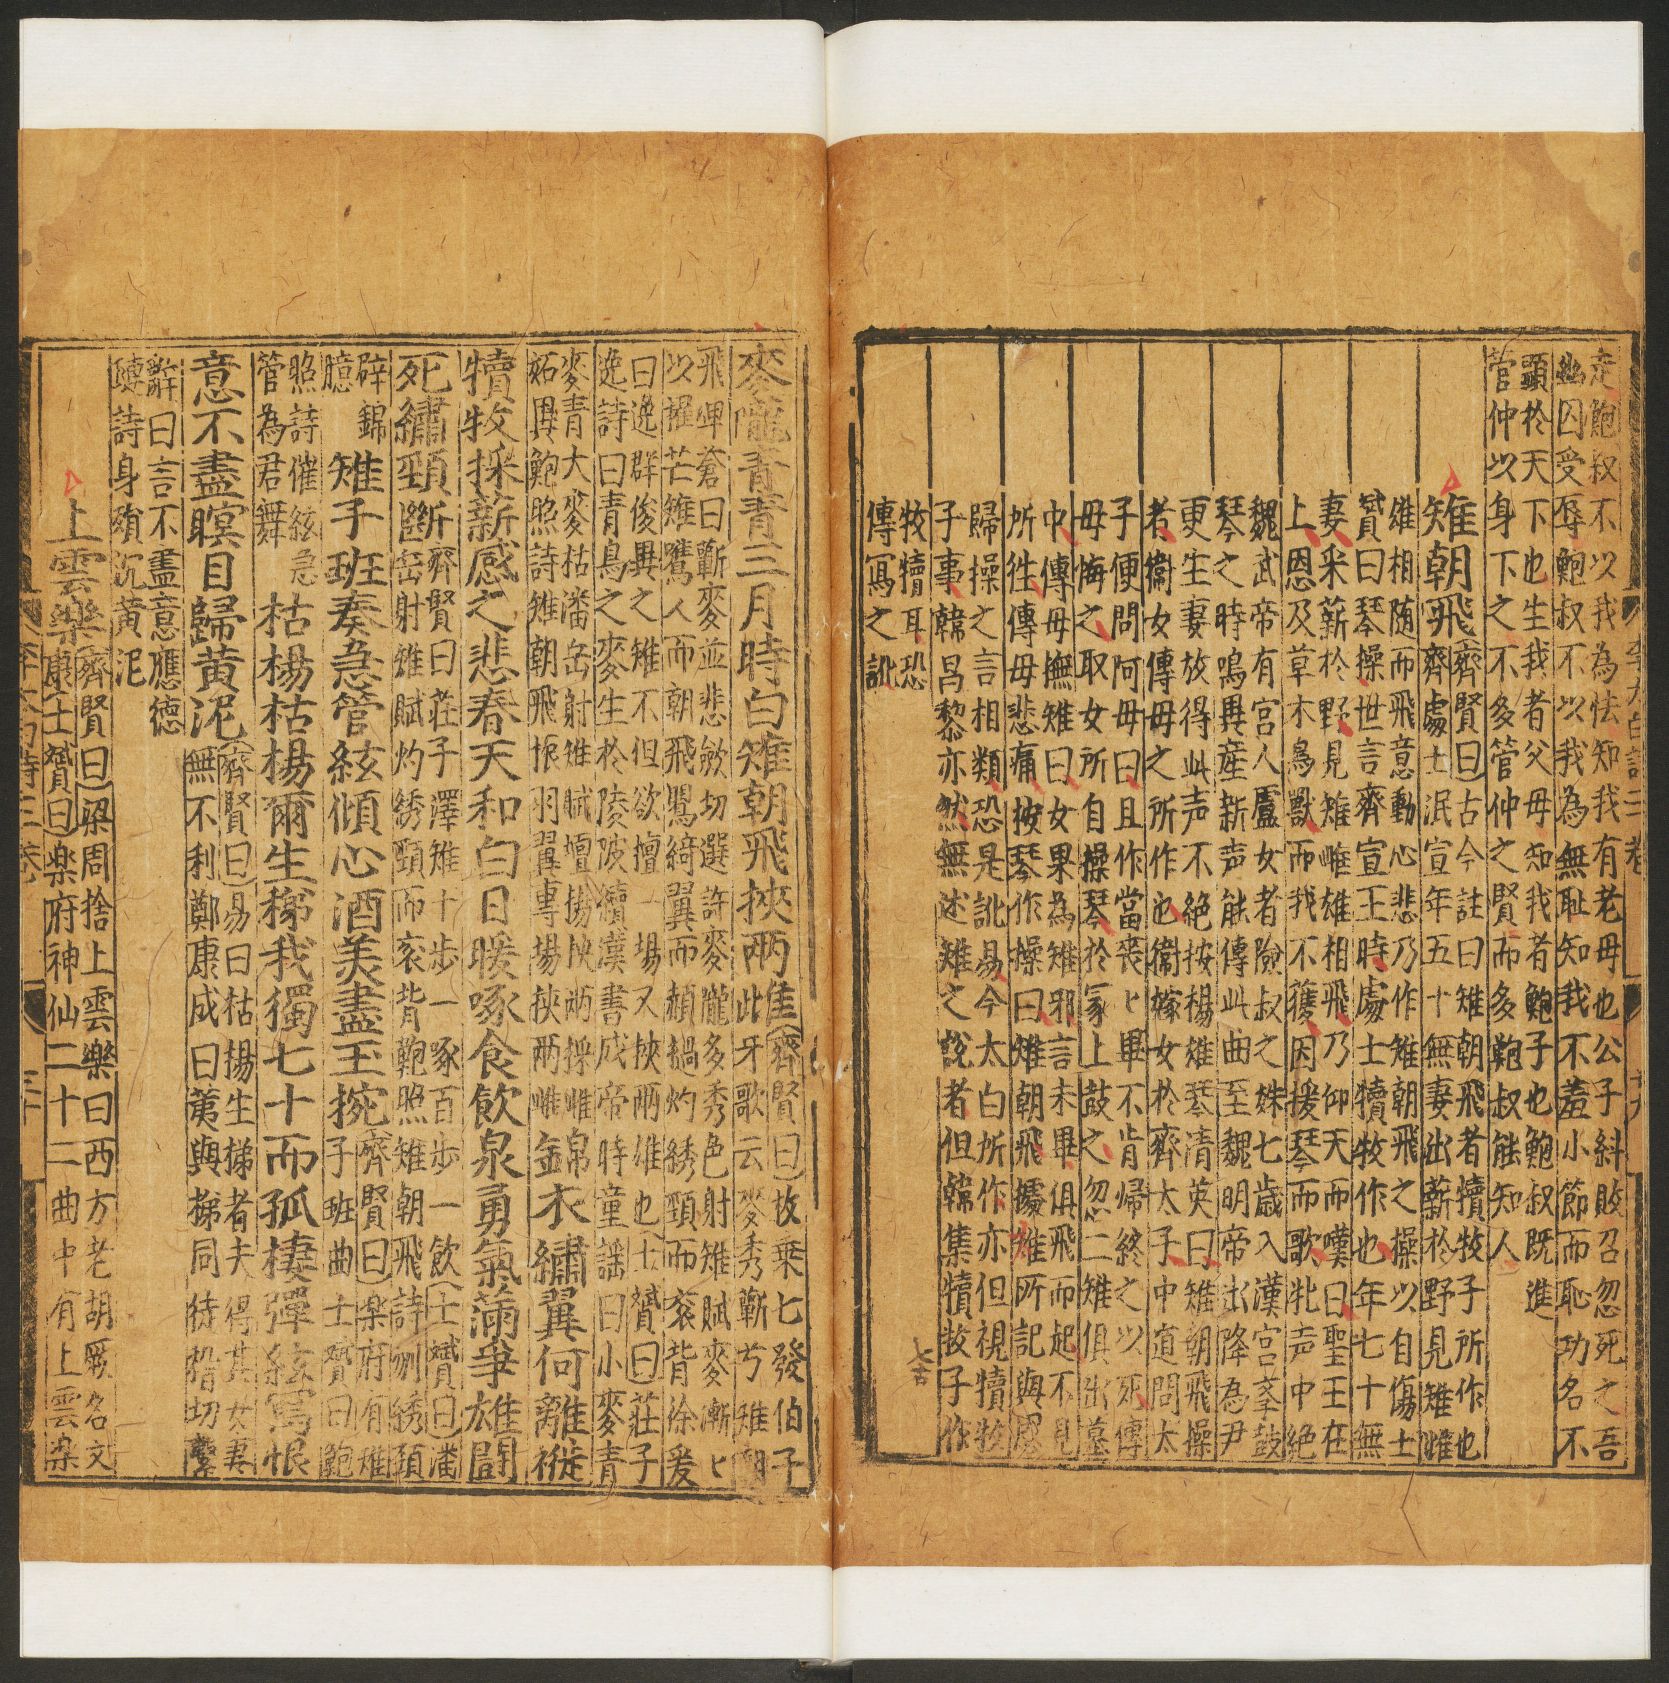 走鮑叔不以我為怯知我有老母也公子糾敗召忽死之吾
幽囚受辱鮑叔不以我為無耻知我不羞小節而恥功名不
顯於天下也生我者父母知我者鮑子也鮑叔既進
管仲以身下之不多管仲之賢而多鮑叔能知人
雉朝飛
齊賢曰古今註曰雉朝飛者犢牧子所作也
齊處士泯宣年五十無妻出薪於野見雉雌
雄相随而飛意動心悲乃作雉朝飛之操以自傷士
贇曰琴操世言齊宣王時處士犢牧作也年七十無
妻采薪於野見雉雌雄相飛乃仰天而嘆曰聖王在
上恩及草木鳥獸而我不獲因援琴而歌牝声中絶
魏武帝有宮人盧女者陰叔之姝七歲入漢宮孝鼓
琴之時鳴異産新声能傳此曲至魏明帝出降為尹
更生妻放得此声不絶按楊雄琴清英曰雉朝飛操
者衞女傅母之所作也衞嫁女於齊太子中道問太
子便問阿母曰且作當喪ヒ畢不肯歸終之以死傅
母悔之取女所自操琴於冢上鼓之忽二雉俱出墓
中傅母撫雉曰女果為雉邪言未畢俱飛而起不見
所徃傅母悲痛按琴作操曰雉朝飛據雄所記與
歸操之言相類恐是訛易今太白所作亦但視犢牧
子事韓昌黎亦然無述雄之說者但韓集犢牧子作
牧犢耳恐
傳冩之訛
麥隴青青三月時白雉朝飛挾兩雌
齊賢曰故乗七發伯子
此牙歌云麥秀蔪兮雉朝
飛埤蒼曰蔪麥並悲歛切選許麥隴多秀色射雉賦麥漸ヒ
以擢芒雉鷕人而朝飛鸎綺翼而赬撾灼綉頸而衮背徐爰
曰逸群俊異之雉不但欲擅一場又挾兩雌也士贇曰莊子
逸詩曰青鳥之麥生於陵陂續漢書成帝時童謡曰小麥青
麥青大麥枯潘岳射雉賦擅場挾兩採雌
妬異鮑照詩雉朝飛振羽翼專場挾兩雌
錦衣繡翼何離褷
犢牧採薪感之悲春天和白日暖啄食飲泉勇氣滿爭雄鬪
死繡頸斷
齊賢曰莊子澤雉十步一啄百步一飲士贇曰潘
岳射雉賦灼綉頸而衮背鮑照雉朝飛詩刎綉頸
碎錦
臆
雉子班奏急管絃傾心酒美盡玉椀
齊賢曰楽府有雉
子班曲士贇曰鮑
照詩催絃急
管為君舞
枯楊枯楊爾生稊我獨七十而孤棲彈絃寫恨
意不盡瞑目歸黄泥
齊賢曰易曰枯揚生稊者夫得其女妻
無不利鄭康成曰荑與稊同徒嵇切繫
辭曰言不盡意應德
璉詩身隕沉黄泥
上雲樂
齊賢曰梁周捨上雲樂曰西方老胡厥名文
康士贇曰楽府神仙二十二曲中有上雲楽
李太白詩三卷
李太白詩三卷